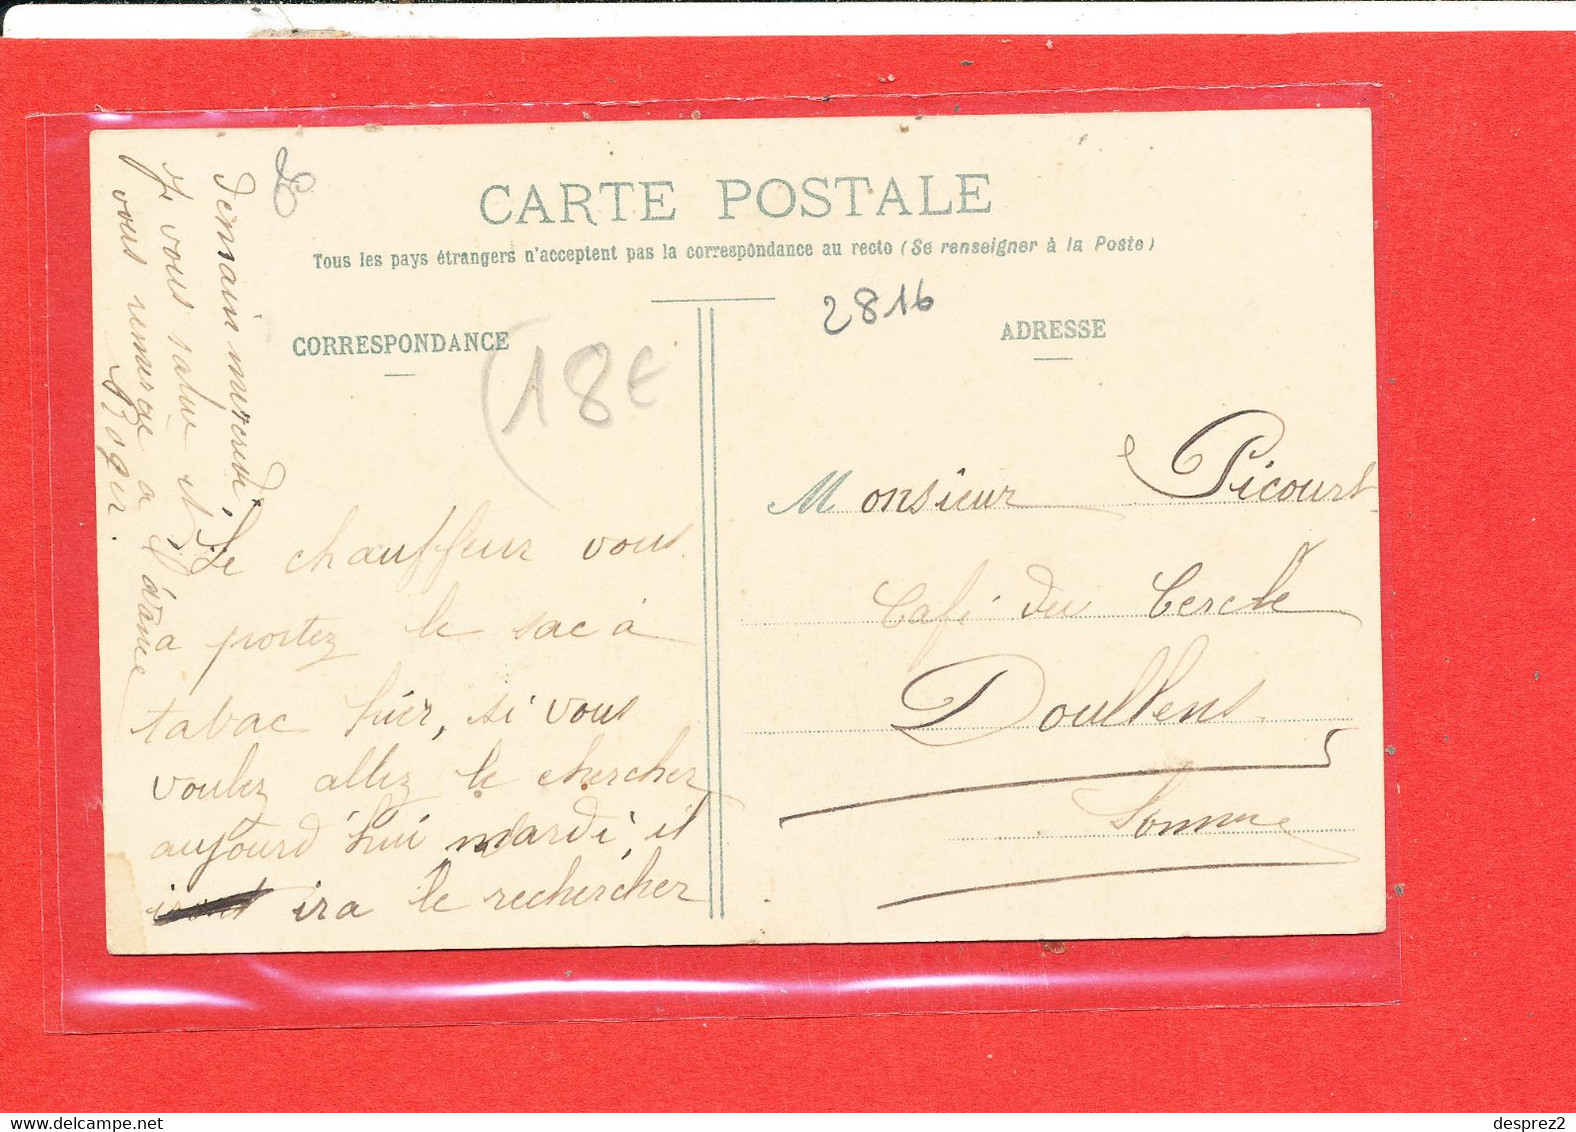 CARTE POSTALE
Tous les pays étrangers n'acceptent pas la correspondance au recto (Se renseigner à la Poste)
2816
CORRESPONDANCE
ADRESSE
(18€
Monsieur Picourt
Café du Cercle
Doullens
Somme
Le chauffeur vous
a portez le sac à
tabac hier, si vous
voulez allez le chercher
aujourd'hui mardi, il
ira le rechercher
demain mercredi,
Je vous salue et
vous remercie à
desprez2